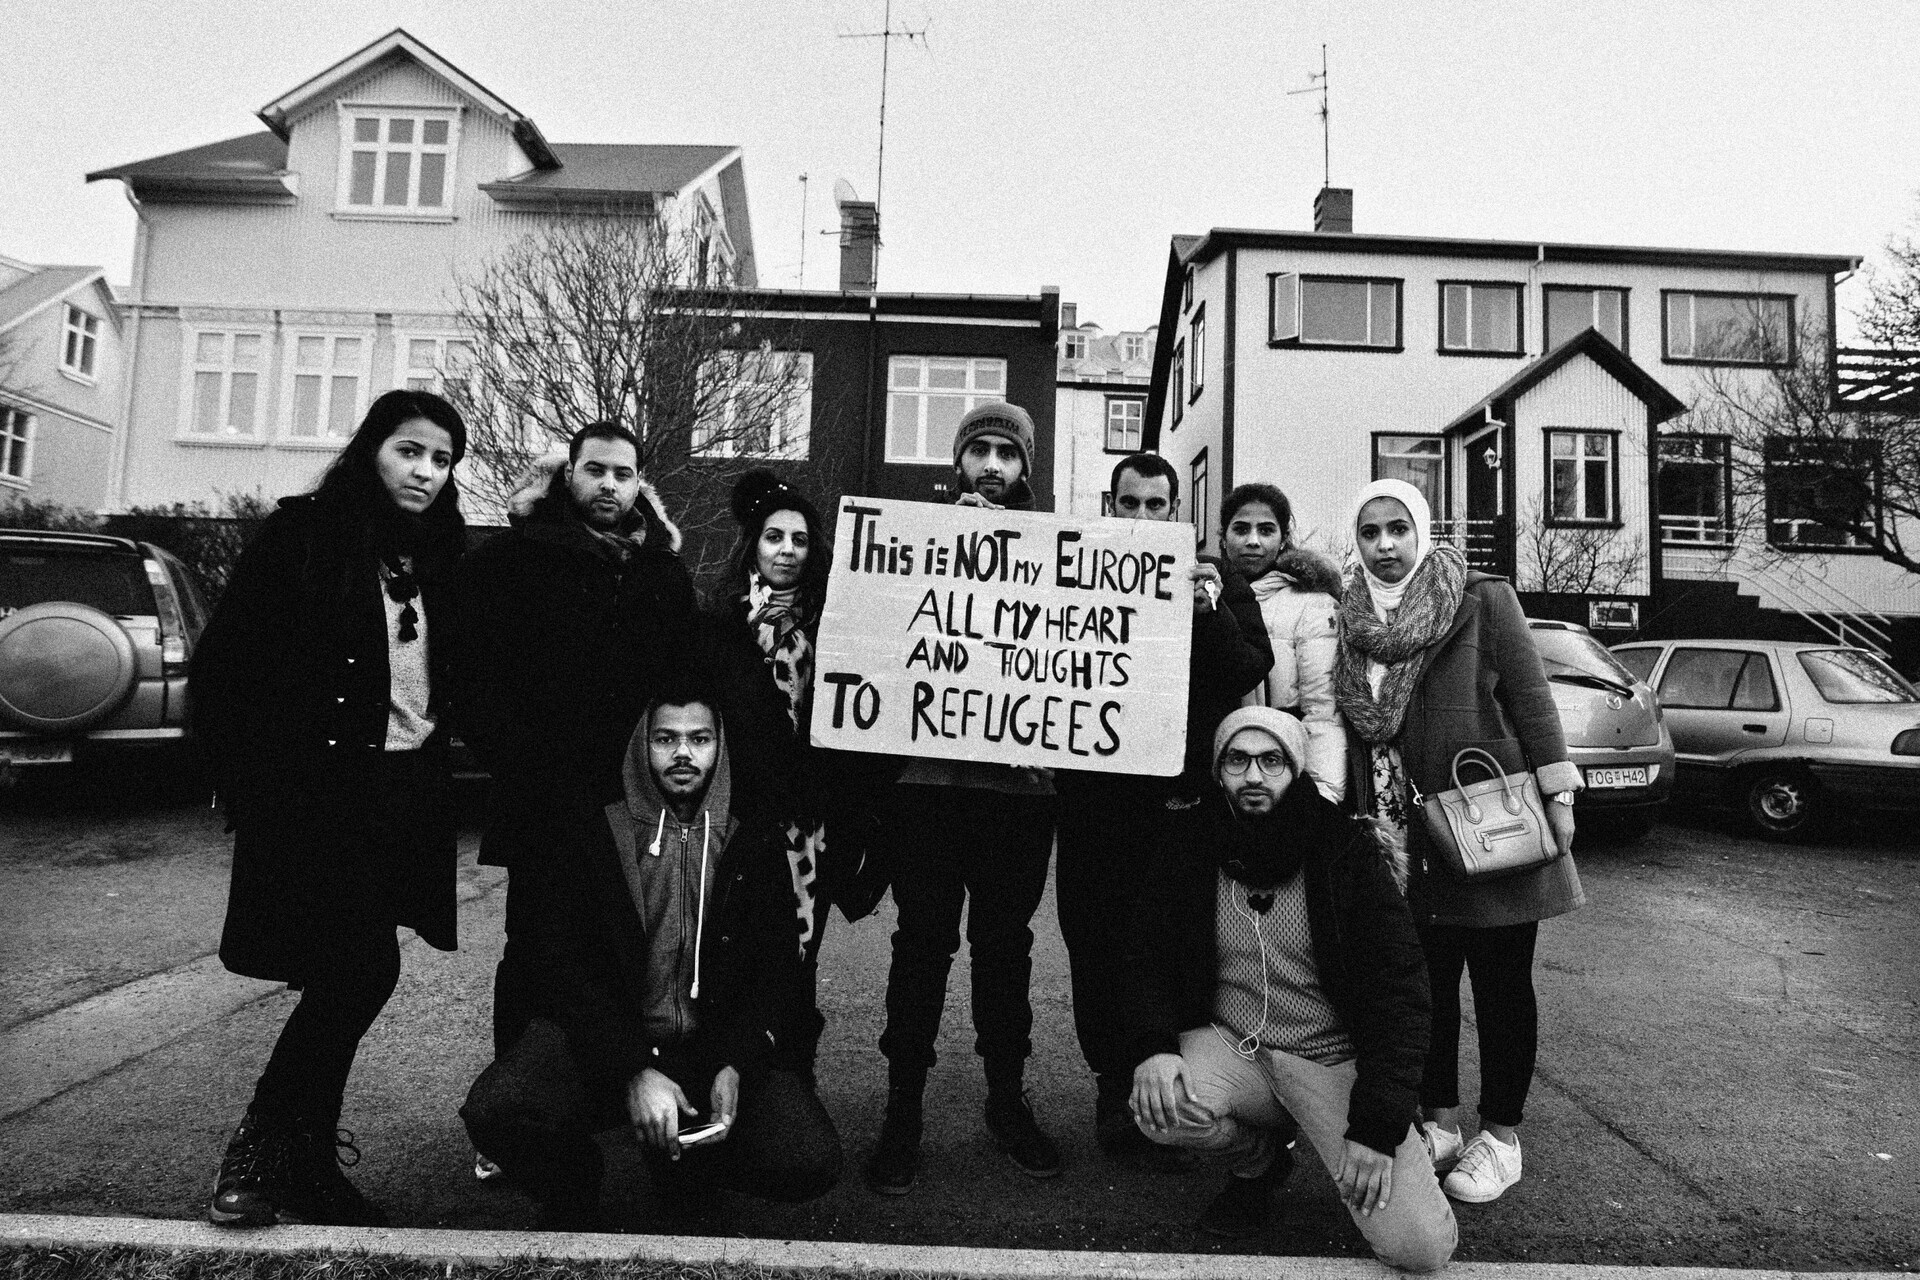 This is NOT MY EUROPE
ALL MY HEART
AND THOUGHTS
TO REFUGEES
OG H42